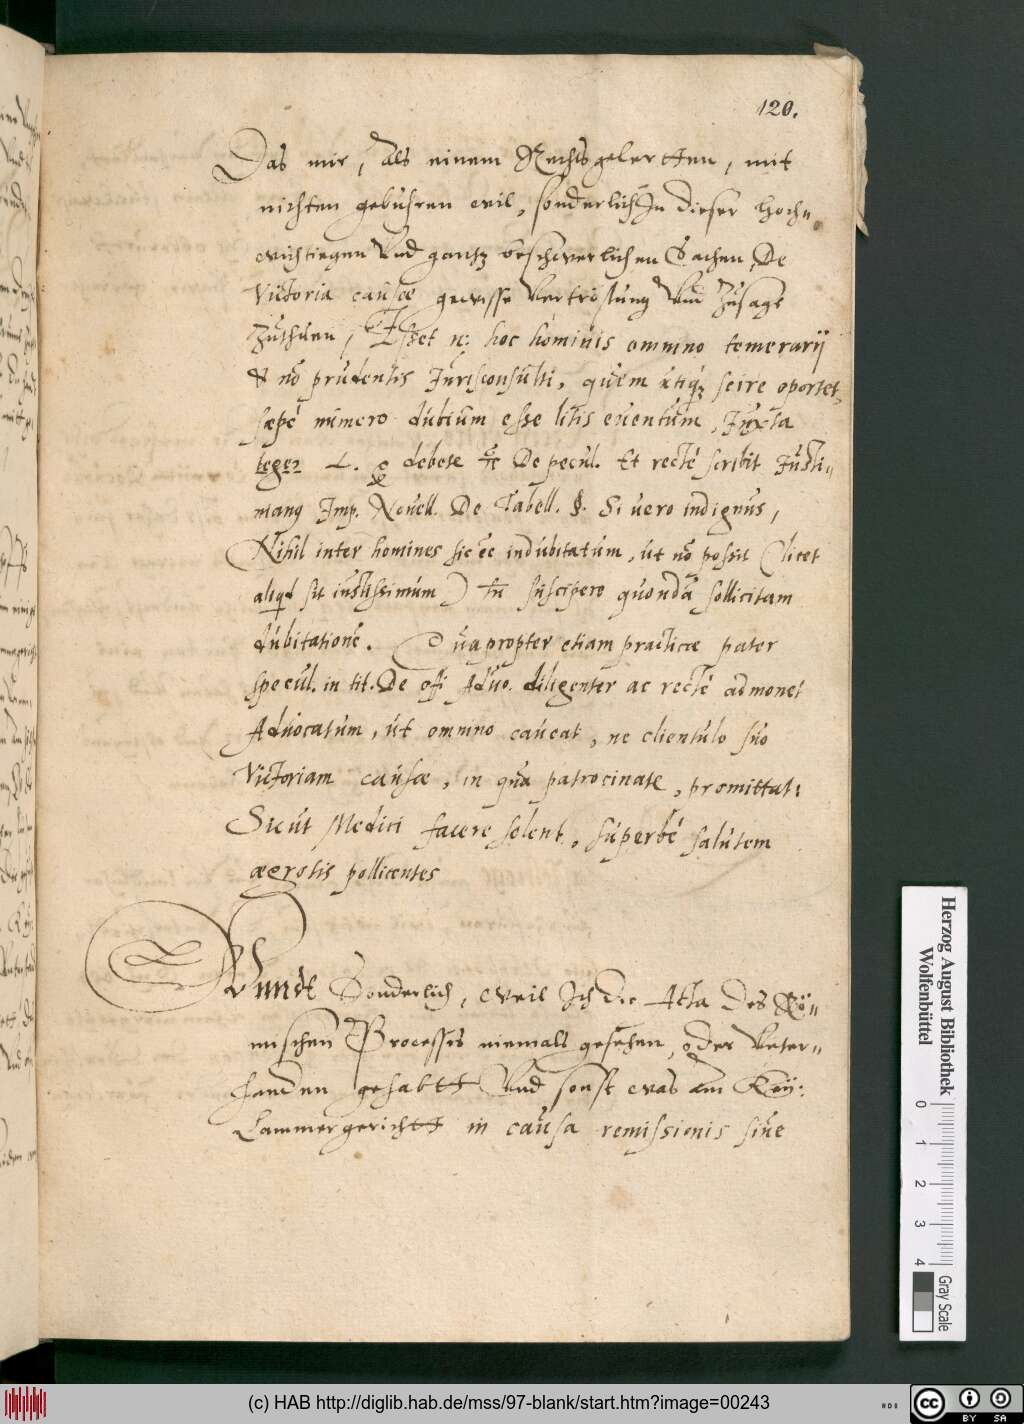 120.
Das mir, Als einem Rechtsgelertten, mit
nichten gebühren will, sonderlich In dieser hoch„
wichtiegen Vnd gantz beschwerlichen Sachen, De
Victoria causæ gewisse Vertröstung Vnd Zusage
Zuthuen, Esset n: hoc hominis omnino temerarij
& nō prudentis Jurisconsulti, quem utiqȝ scire oportet,
sæpé numero dubium esse litis euentum, Juxta
leges L. debere De pecul. Et recté scribit Justi„
manꝯ Imp. Nouell. De Tabell. §. Si vero indignus,
Nihil inter homines sic ēē indubitatum, ut nō possit (licet
aliqd sit iustissimum) tn̄ suscipere quondā sollicitam
dubitationē. Quapropter etiam practicæ pater
specul. in tit. De offi Aduo. diligenter ac recté admonet
Aduocatum, ut omnino caueat, ne clientulo suo
Victoriam causæ, in qua patrocinate, promittat:
Sicut Medici facere solent, superbé salutem
ægrotis pollicentes
Vnndt Sonderlich, weil Ich die Acta des Rö„
mischen Processes niemals gesehen, oder Vnter„
handen gehabtt Vnd sonst was am Kay:
Cammergerichtt in causa remissionis siue
Herzog August Bibliothek
Wolfenbüttel
0 1 2 3 4
Gray Scale
(c) HAB http://diglib.hab.de/mss/97-blank/start.htm?image=00243
HAB
cc BY SA